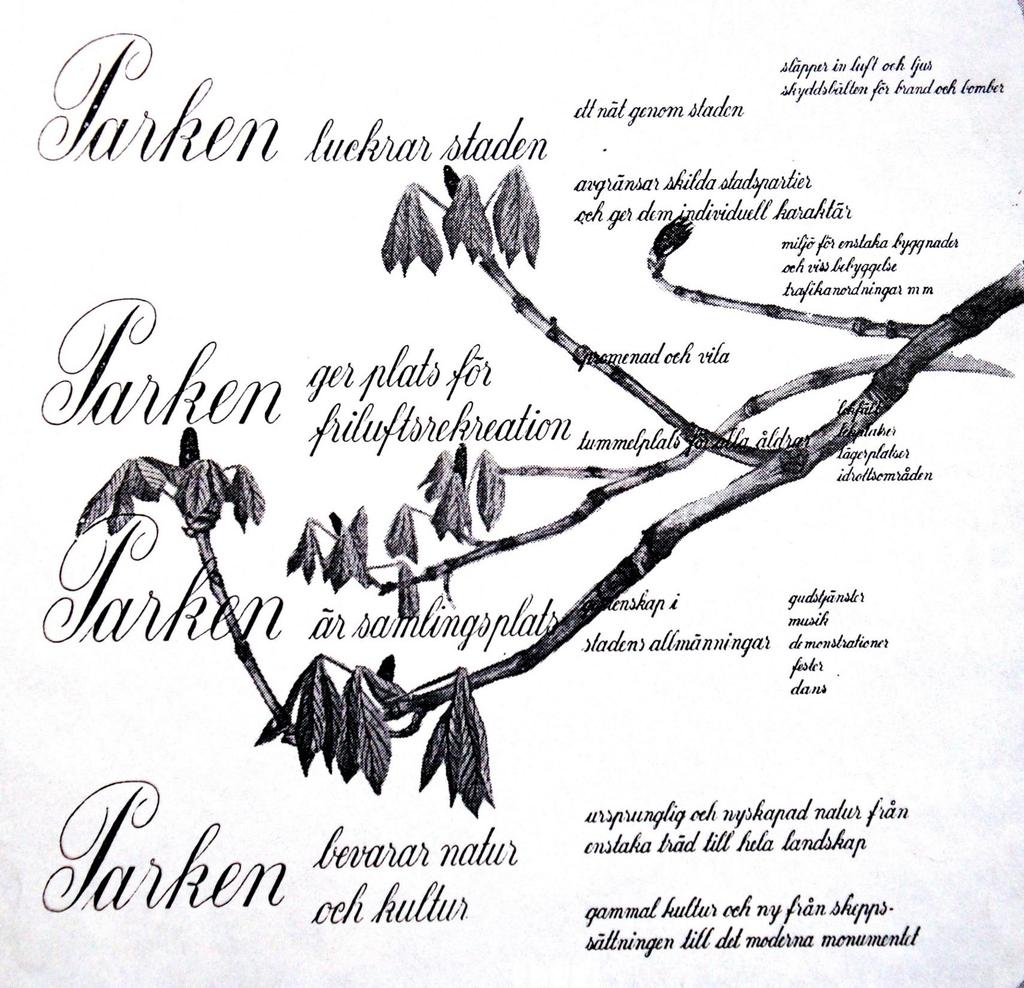 Parken luckrar staden
ett nät genom staden
släpper in luft och ljus
skyddsbälten för brand och bomber
avgränsar skilda stadspartier
och ger dem individuell karaktär
miljö för enstaka byggnader
och viss bebyggelse
trafikanordningar m m
Parken ger plats för
friluftsrekreation
promenad och vila
tummelplats för alla åldrar
lekfält
lekplatser
lägerplatser
idrottsområden
Parken är samlingsplats
i
stadens allmänningar
gudstjänster
musik
demonstrationer
fester
dans
Parken bevarar natur
och kultur
ursprunglig och nyskapad natur från
enstaka träd till hela landskap
gammal kultur och ny från skepps-
sättningen till det moderna monumentet